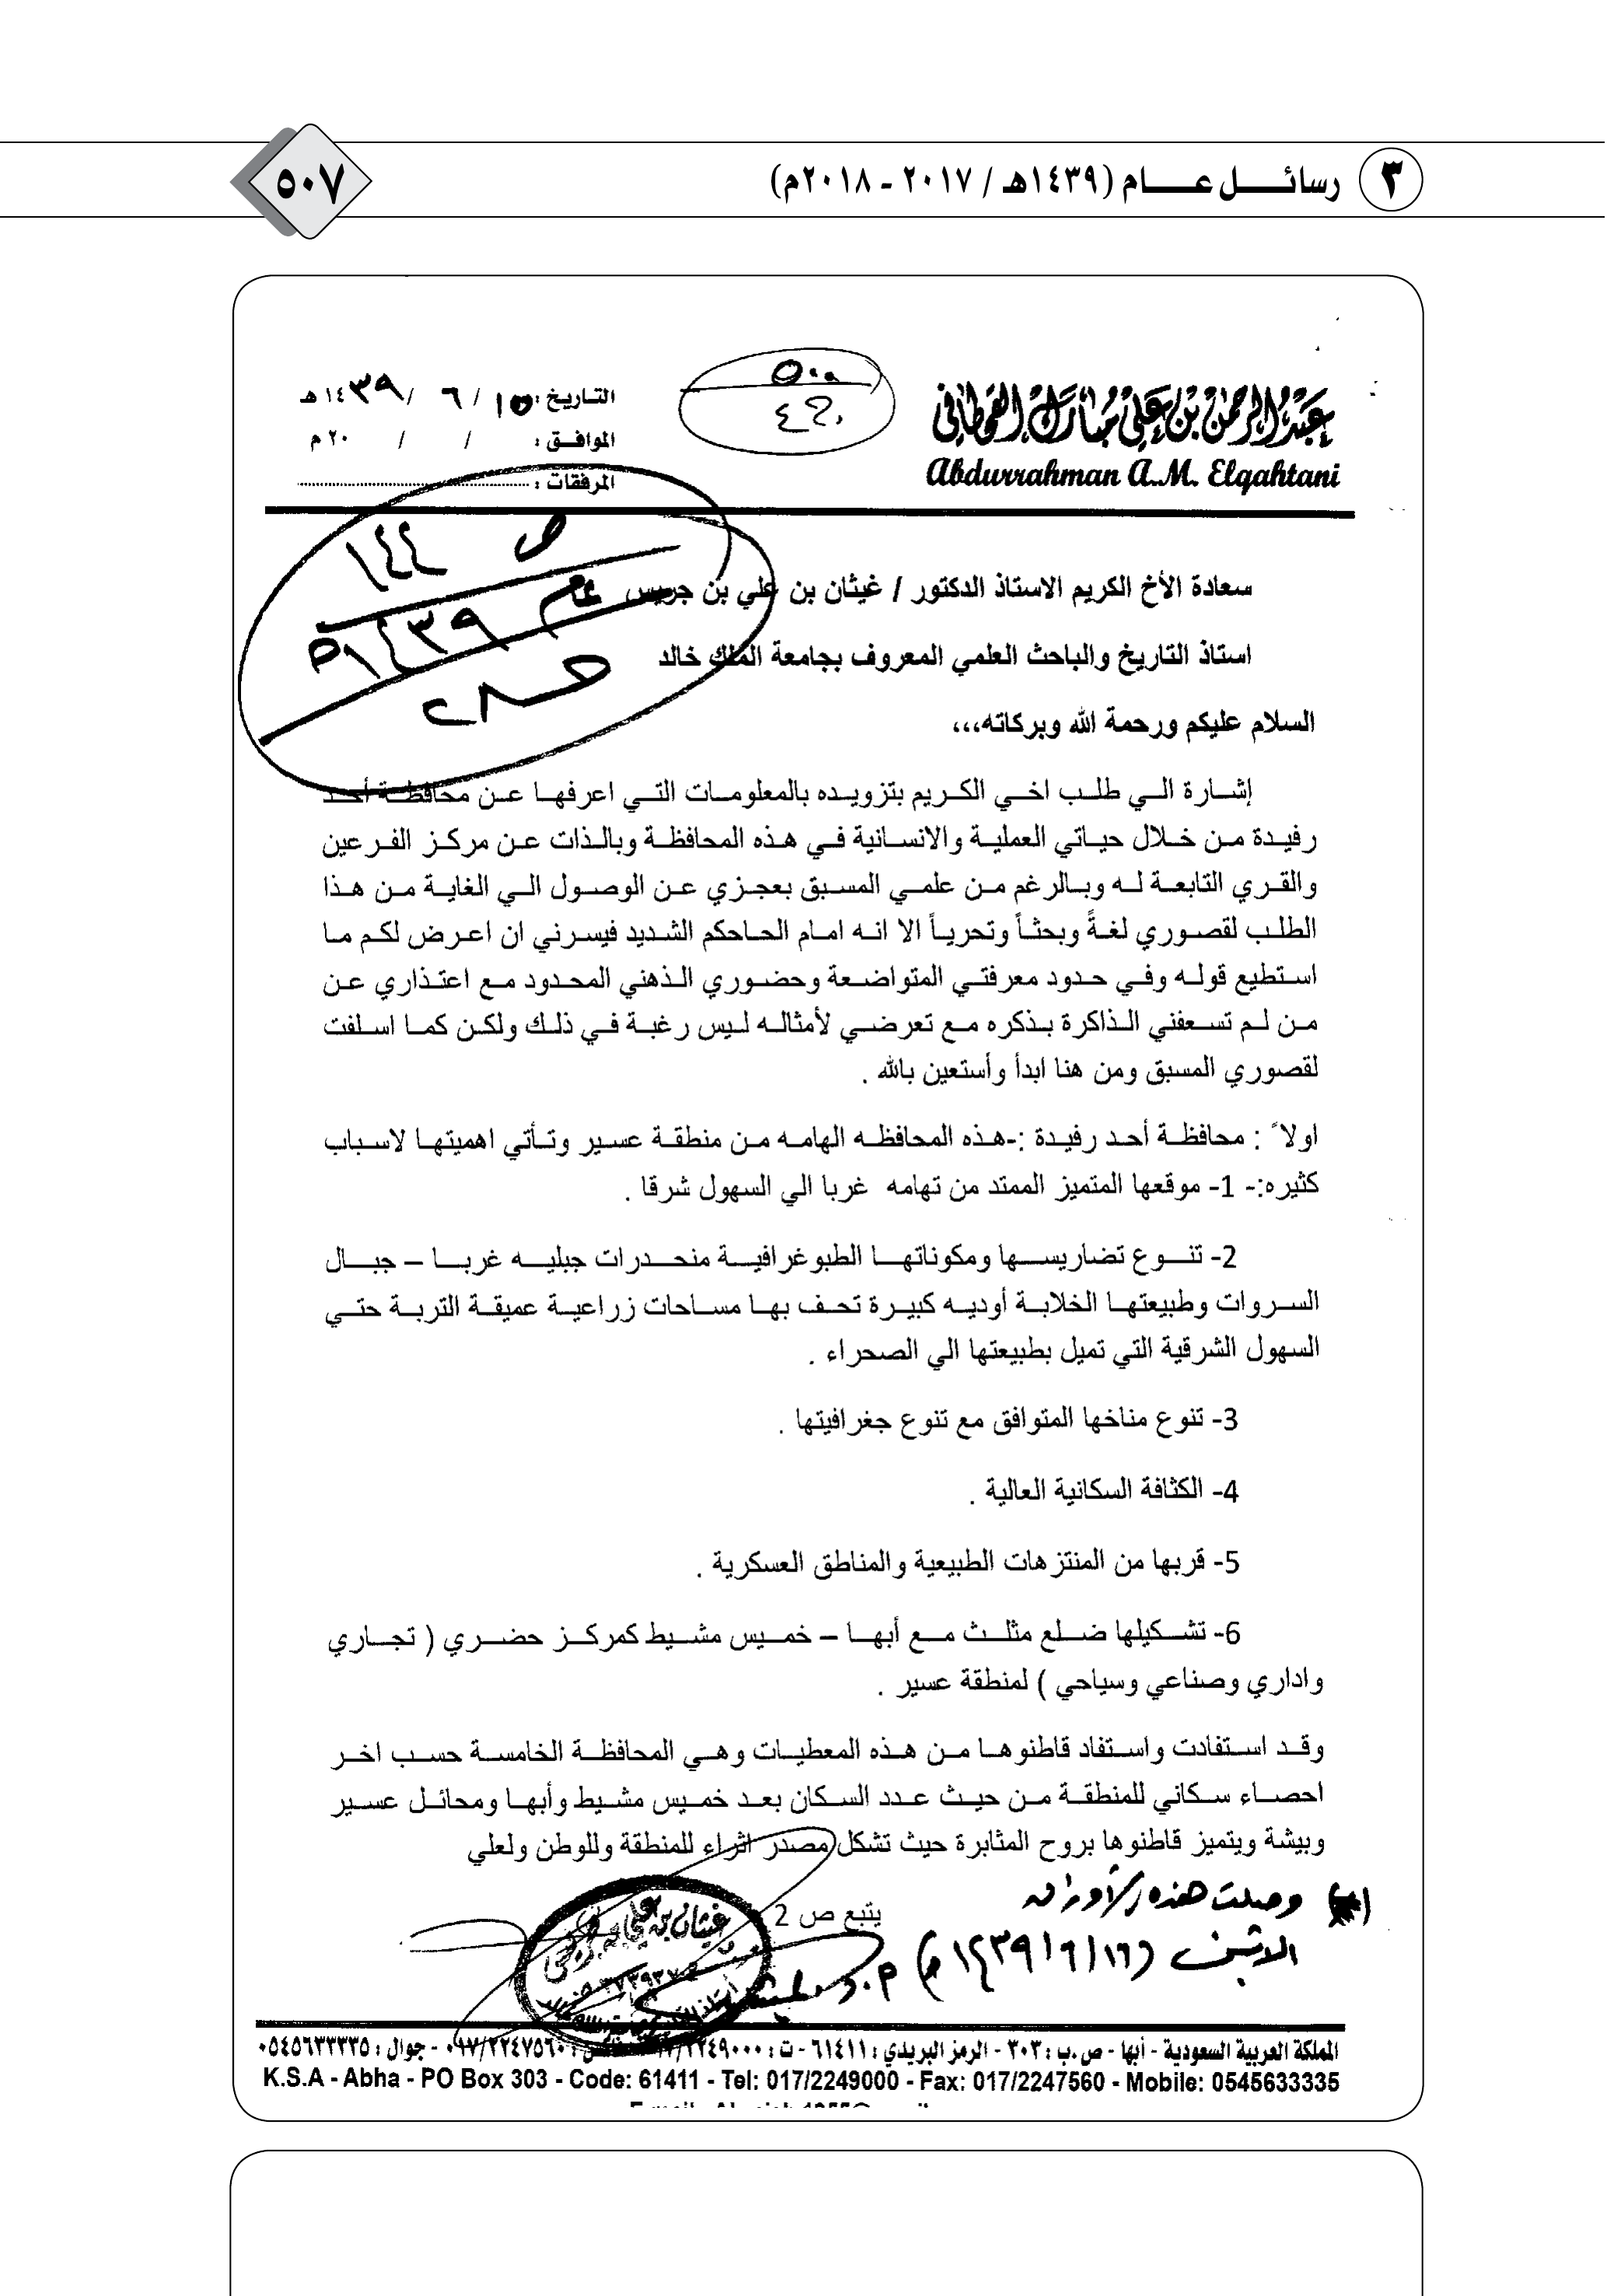 ٣ رسائل عام (١٤٣٩هـ / ٢٠١٧ - ٢٠١٨م)
٥٠٧
عبدالرحمن بن علي مبارك القحطاني
Abdurrahman A.M. Elqahtani
التاريخ : ١٥ / ٦ / ١٤٣٩ هـ
الموافق : / / ٢٠ م
المرفقات :
ص ١٤٤
عام ١٤٣٩هـ
سعادة الأخ الكريم الاستاذ الدكتور / غيثان بن علي بن جريس
استاذ التاريخ والباحث العلمي المعروف بجامعة الملك خالد
السلام عليكم ورحمة الله وبركاته،،،
إشارة الي طلب اخي الكريم بتزويده بالمعلومات التي اعرفها عن محافظة أحد
رفيدة من خلال حياتي العملية والانسانية في هذه المحافظة وبالذات عن مركز الفرعين
والقري التابعة له وبالرغم من علمي المسبق بعجزي عن الوصول الي الغاية من هذا
الطلب لقصوري لغةً وبحثاً وتحرياً الا انه امام الحاحكم الشديد فيسرني ان اعرض لكم ما
استطيع قوله وفي حدود معرفتي المتواضعة وحضوري الذهني المحدود مع اعتذاري عن
من لم تسعفني الذاكرة بذكره مع تعرضي لأمثاله ليس رغبة في ذلك ولكن كما اسلفت
لقصوري المسبق ومن هنا ابدأ وأستعين بالله .
اولاً : محافظة أحد رفيدة :-هذه المحافظه الهامه من منطقة عسير وتأتي اهميتها لاسباب
كثيره:- 1- موقعها المتميز الممتد من تهامه غربا الي السهول شرقا .
2- تنوع تضاريسها ومكوناتها الطبوغرافية منحدرات جبليه غربا – جبال
السروات وطبيعتها الخلابة أوديه كبيرة تحف بها مساحات زراعية عميقة التربة حتي
السهول الشرقية التي تميل بطبيعتها الي الصحراء .
3- تنوع مناخها المتوافق مع تنوع جغرافيتها .
4- الكثافة السكانية العالية .
5- قربها من المنتزهات الطبيعية والمناطق العسكرية .
6- تشكيلها ضلع مثلث مع أبها – خميس مشيط كمركز حضري ( تجاري
واداري وصناعي وسياحي ) لمنطقة عسير .
وقد استفادت واستفاد قاطنوها من هذه المعطيات وهي المحافظة الخامسة حسب اخر
احصاء سكاني للمنطقة من حيث عدد السكان بعد خميس مشيط وأبها ومحائل عسير
وبيشة ويتميز قاطنوها بروح المثابرة حيث تشكل مصدر اثراء للمنطقة وللوطن ولعلي
يتبع ص 2
(*) وصلت هذه الأوراق
الاثنين (١٤٣٩/٦/١٦هـ)
المملكة العربية السعودية - أبها - ص.ب : ٣٠٣ - الرمز البريدي : ٦١٤١١ - ت : ٠١٧/٢٢٤٩٠٠٠ - فاكس : ٠١٧/٢٢٤٧٥٦٠ - جوال : ٠٥٤٥٦٣٣٣٣٥
K.S.A - Abha - PO Box 303 - Code: 61411 - Tel: 017/2249000 - Fax: 017/2247560 - Mobile: 0545633335